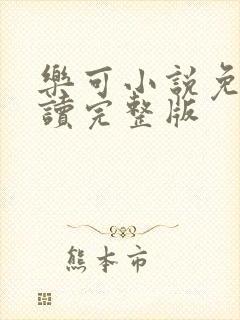 樂可小說免
讀完整版
熊本市